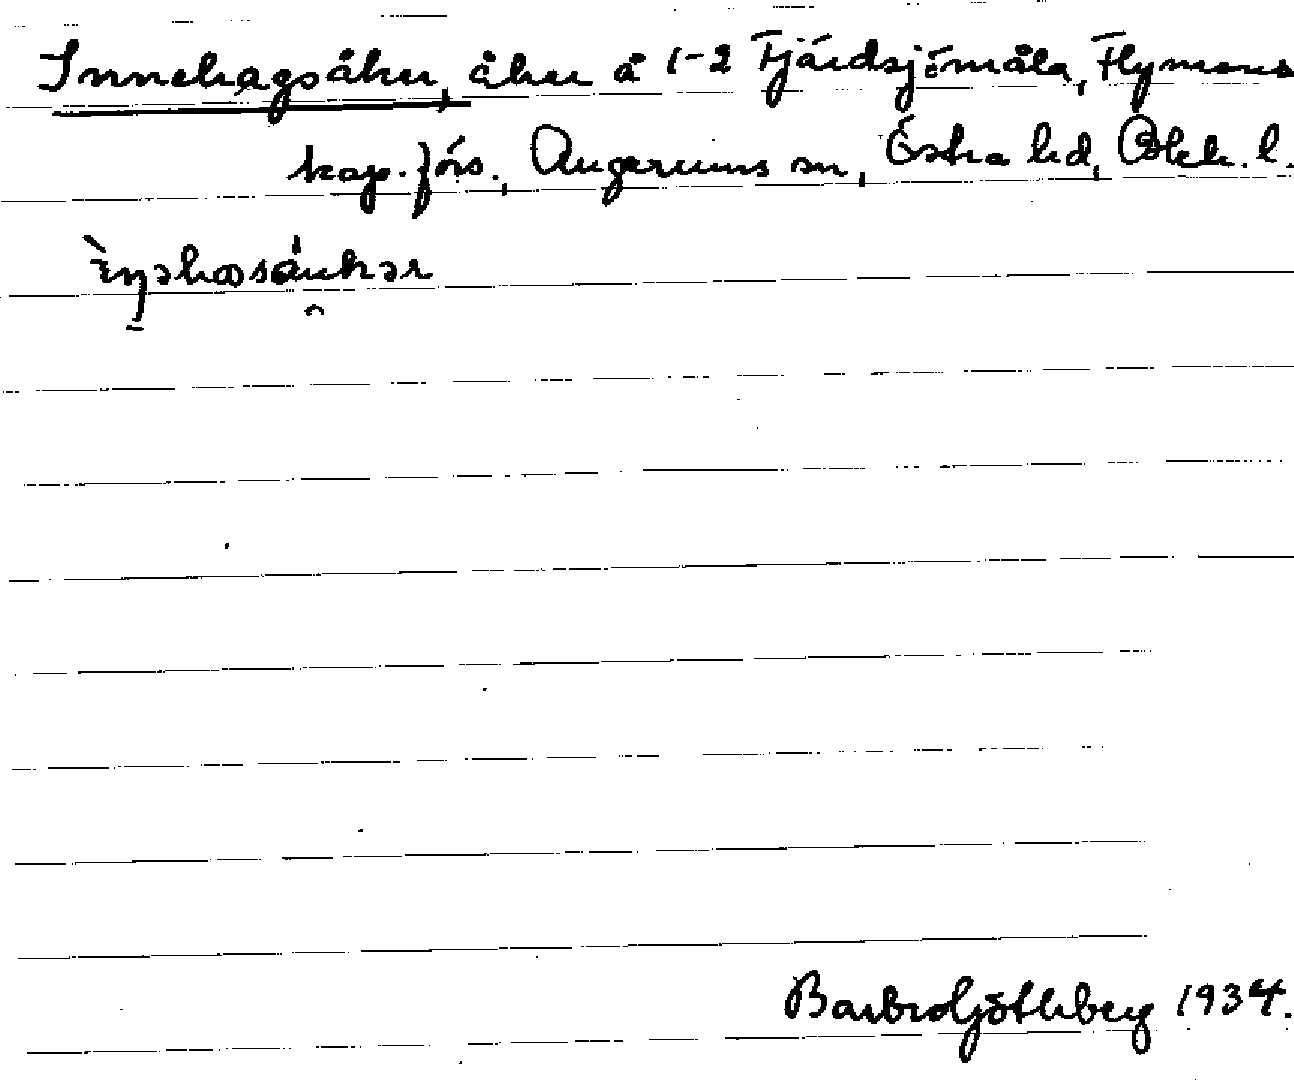 Innehagsåker, åker å 1-2 Fjärdsjömåla, Flymens
kap. förs., Augerums sn, Östra hd, Blek. l.
Barbro Götlberg 1934.